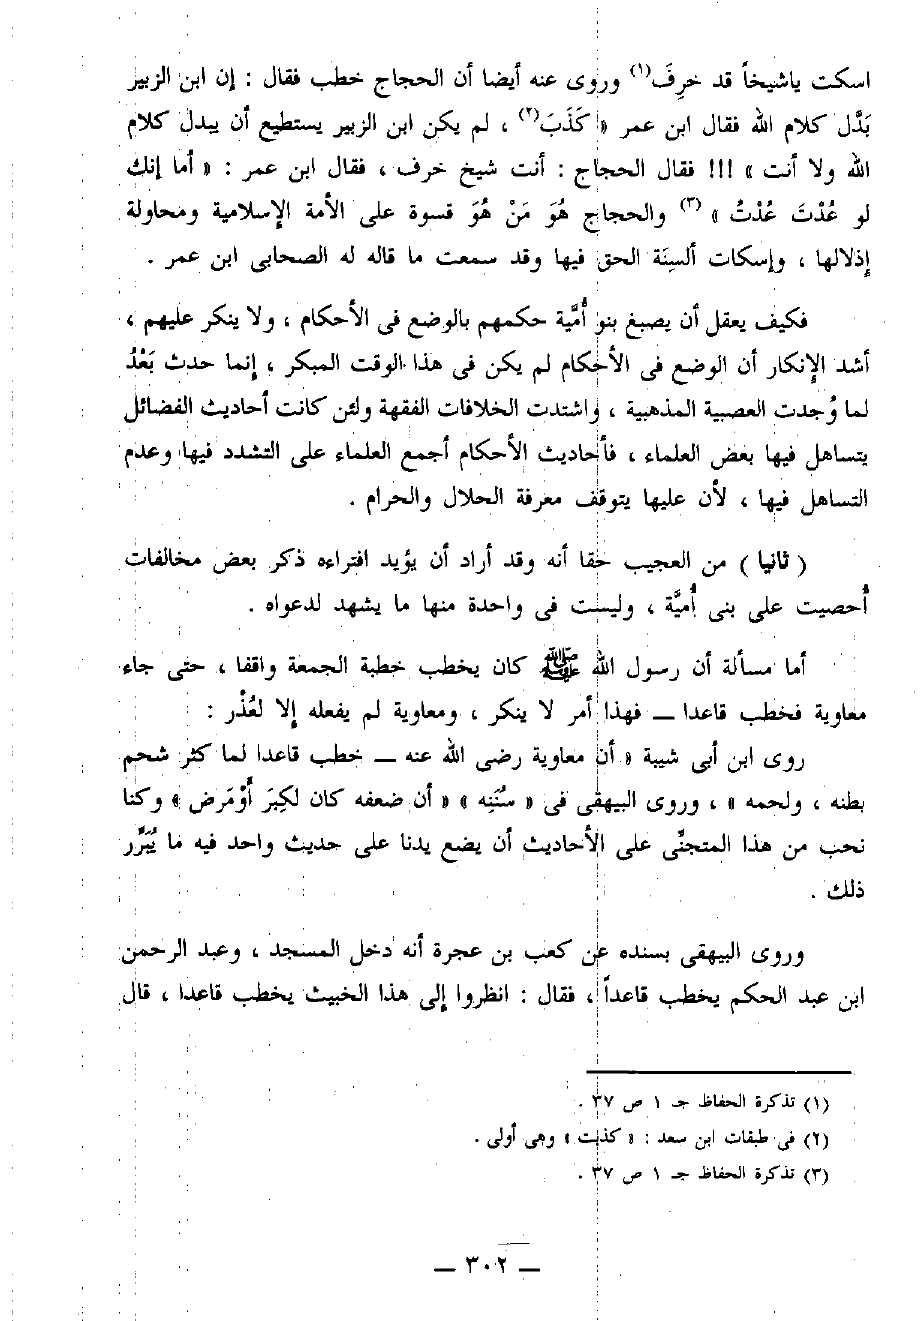 اسكت ياشيخاً قد خرِفَ(١) وروى عنه أيضا أن الحجاج خطب فقال : إن ابن الزبير
بَدَّل كلام الله فقال ابن عمر « كَذَبَ(٢) ، لم يكن ابن الزبير يستطيع أن يبدل كلام
الله ولا أنت » !!! فقال الحجاج : أنت شيخ خرف ، فقال ابن عمر : « أما إنك
لو عُدْتَ عُدْتُ » (٣) والحجاج هُوَ مَنْ هُوَ قسوة على الأمة الإسلامية ومحاولة
إذلالها ، وإسكات ألسِنَة الحق فيها وقد سمعت ما قاله له الصحابى ابن عمر .
فكيف يعقل أن يصبغ بنو أُمَيَّة حكمهم بالوضع فى الأحكام ، ولا ينكر عليهم ،
أشد الإنكار أن الوضع فى الأحكام لم يكن فى هذا الوقت المبكر ، إنما حدث بَعْدُ
لما وُجدت العصبية المذهبية ، واشتدت الخلافات الفقهة ولئن كانت أحاديث الفضائل
يتساهل فيها بعض العلماء ، فأحاديث الأحكام أجمع العلماء على التشدد فيها وعدم
التساهل فيها ، لأن عليها يتوقف معرفة الحلال والحرام .
( ثانيا ) من العجيب حقا أنه وقد أراد أن يؤيد افتراءه ذكر بعض مخالفات
أُحصيت على بنى أُميَّة ، وليست فى واحدة منها ما يشهد لدعواه .
أما مسألة أن رسول الله ﷺ كان يخطب خطبة الجمعة واقفا ، حتى جاء
معاوية فخطب قاعدا ـ فهذا أمر لا ينكر ، ومعاوية لم يفعله إلا لعُذْر :
روى ابن أبى شيبة « أن معاوية رضى الله عنه ـ خطب قاعدا لما كثر شحم
بطنه ، ولحمه » ، وروى البيهقى فى « سُنَنِه » « أن ضعفه كان لكِبَر أَوْمَرض » وكنا
نحب من هذا المتجنِّى على الأحاديث أن يضع يدنا على حديث واحد فيه ما يُبَرِّر
ذلك .
وروى البيهقى بسنده عن كعب بن عجرة أنه دخل المسجد ، وعبد الرحمن
ابن عبد الحكم يخطب قاعداً ، فقال : انظروا إلى هذا الخبيث يخطب قاعدا ، قال
(١) تذكرة الحفاظ جـ ١ ص ٣٧ .
(٢) فى طبقات ابن سعد : « كذبت » وهى أولى .
(٣) تذكرة الحفاظ جـ ١ ص ٣٧ .
ـ ٣٠٢ ـ